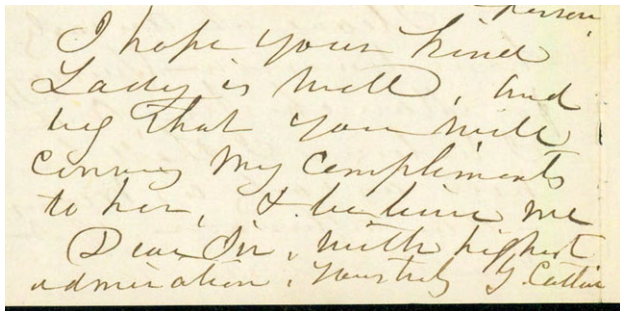 person
I hope your kind
Lady is well, and
beg that you will
convey my compliments
to her, & believe me
Dear Sir, with highest
admiration, yours truly G. Catlin